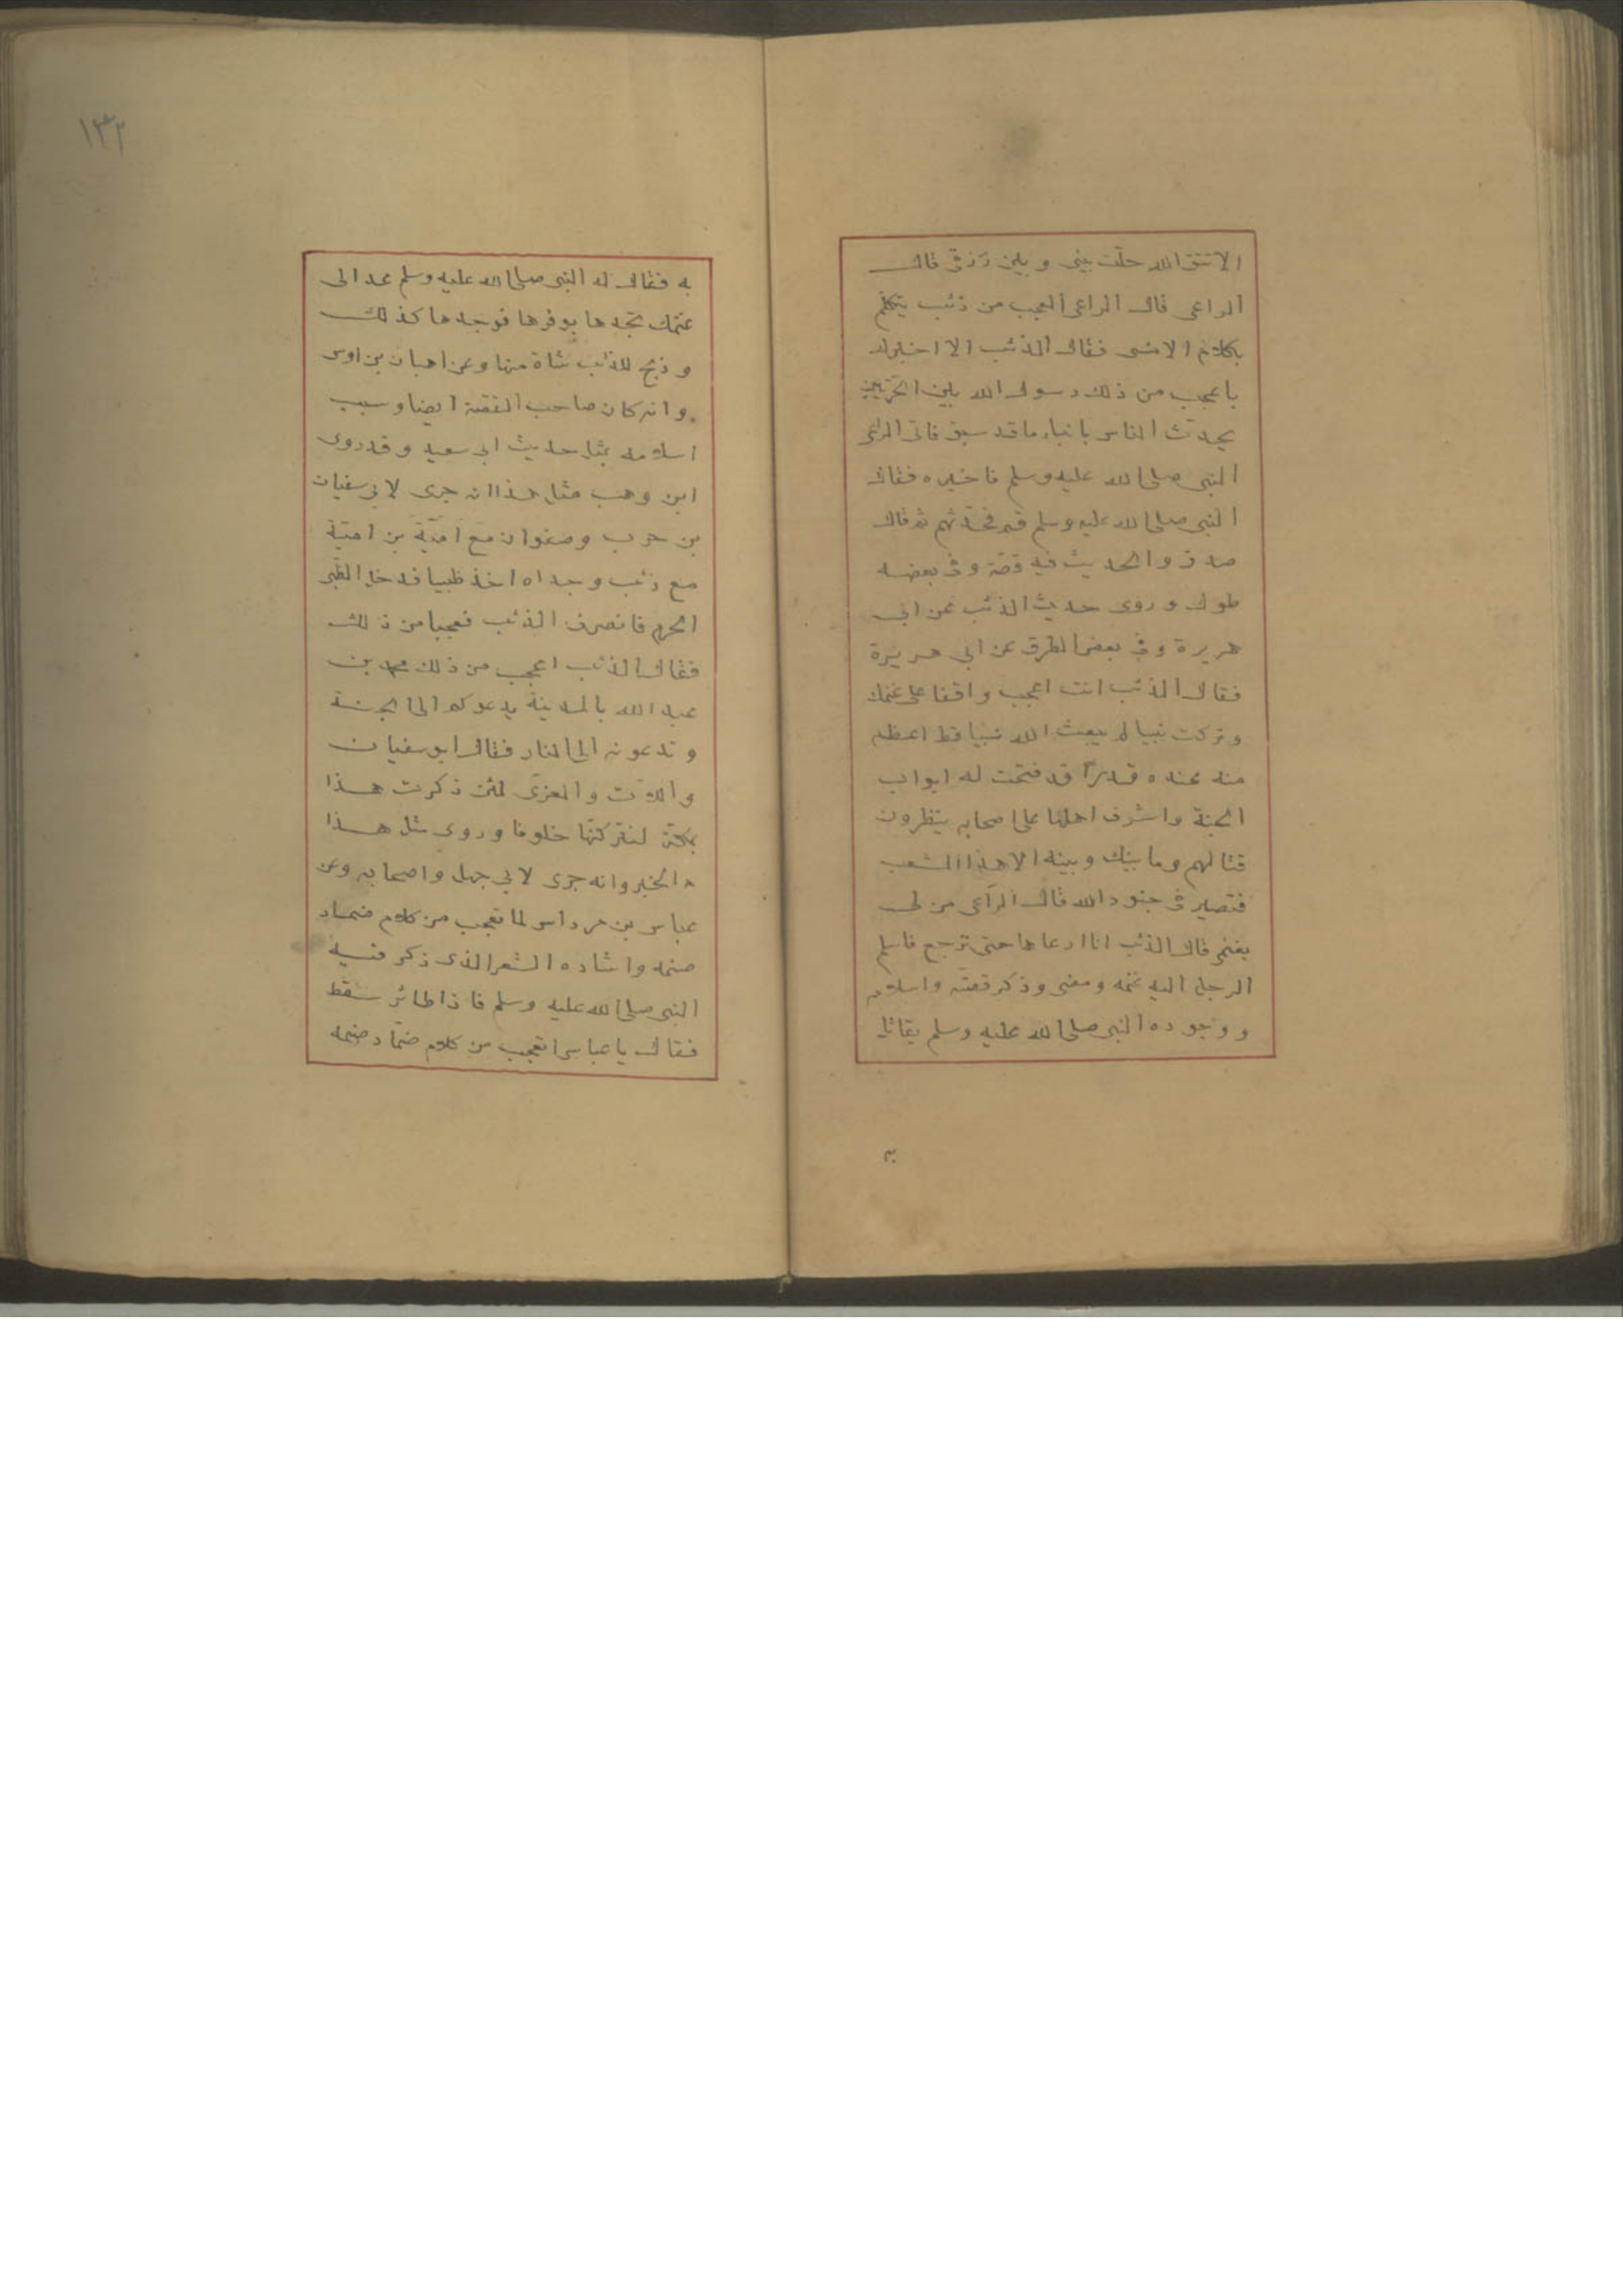 الا تتق الله حلت بيني وبين رزقي قال
الراعي قال الراعي العجب من ذئب يتكلم
بكلام الانس فقال الذئب الا اخبرك
باعجب من ذلك رسول الله بين الحرتين
يحدث الناس بانباء ما قد سبق فاتى الراعي
النبي صلى الله عليه وسلم فاخبره فقال
النبي صلى الله عليه وسلم قم فحدثهم ثم قال
صدق والحديث فيه قصة وفي بعضه
طول وروى حديث الذئب عن ابي
هريرة وفي بعض الطرق عن ابي هريرة
فقال الذئب انت اعجب واقفا على غنمك
وتركت نبيا لم يبعث الله نبيا قط اعظم
منه عنده قدرا قد فتحت له ابواب
الجنة واشرف اهلها على اصحابه ينظرون
قتالهم وما بينك وبينه الا هذا الشعب
فتصير في جنود الله قال الراعي من لي
بغنمي قال الذئب انا ارعاها حتى ترجع فاسلم
الرجل اليه غنمه ومضى وذكر قصته واسلامه
ووجوده النبي صلى الله عليه وسلم يقاتل
١٣٢
به فقال له النبي صلى الله عليه وسلم عد الى
غنمك تجدها بوفرها فوجدها كذلك
وذبح للذئب شاة منها وعن اهبان بن اوس
وانه كان صاحب القصة ايضا وسبب
اسلامه بمثل حديث ابي سعيد وقد روى
ابن وهب مثل هذا انه جرى لابي سفيان
بن حرب وصفوان مع امية بن امية
مع ذئب وجداه اخذ ظبيا فدخل الظبي
الحرم فانصرف الذئب فعجبا من ذلك
فقال الذئب اعجب من ذلك محمد بن
عبد الله بالمدينة يدعوكم الى الجنة
وتدعونه الى النار فقال ابو سفيان
واللات والعزى لئن ذكرت هذا
بمكة لنتركنها خلوفا وروى مثل هذا
الخبر وانه جرى لابي جهل واصحابه وعن
عباس بن مرداس لما تعجب من كلام ضماد
صنمه وانشاده الشعر الذي ذكر فيه
النبي صلى الله عليه وسلم فاذا طائر سقط
فقال يا عباس اتعجب من كلام ضماد صنمه